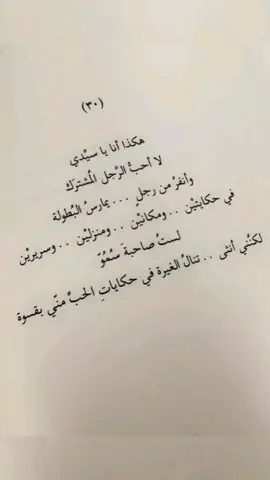 (٣٠)
هكذا أنا يا سيِّدي
لا أحبُّ الرَّجل المُشترَك
وأنفرُ من رجلٍ ... يمارسُ البُطولة
في حكايتيْن .. ومكانيْن .. ومنزليْن .. وسريريْن
لستُ صاحبةَ سُمُوّ
لكنَّني أنثى .. تنالُ الغيرة في حكاياتِ الحبِّ منّي بقسوة